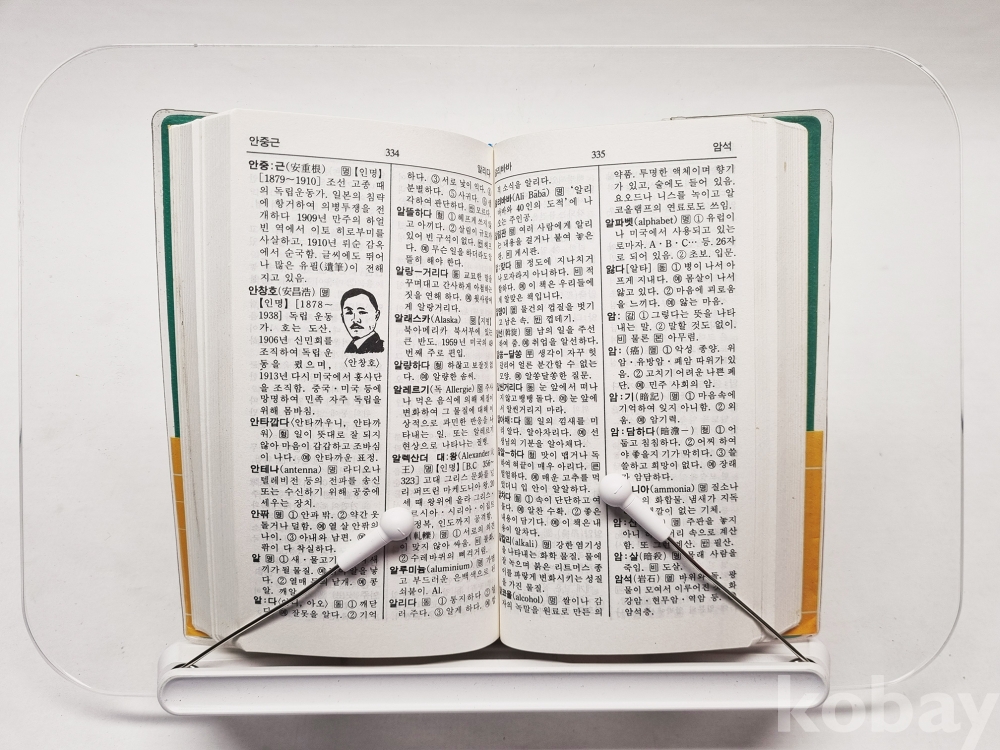 안중근
334
알리다
안중:근(安重根) 명【인명】
[1879~1910] 조선 고종 때
의 독립운동가. 일본의 침략
에 항거하여 의병투쟁을 전
개하다 1909년 만주의 하얼
빈 역에서 이토 히로부미를
사살하고, 1910년 뤼순 감옥
에서 순국함. 글씨에도 뛰어
나 많은 유필(遺筆)이 전해
지고 있음.
안창호(安昌浩) 명
【인명】[1878~
1938] 독립 운동
가. 호는 도산.
1906년 신민회를
조직하여 독립 운
동을 폈으며,
〈안창호〉
1913년 다시 미국에서 흥사단
을 조직함. 중국·미국 등에
망명하여 민족 자주 독립을
위해 몸바침.
안타깝다(안타까우니, 안타까
워) 형 일이 뜻대로 잘 되지
않아 마음이 갑갑하고 조바심
이 나다. 예 안타까운 표정.
안테나(antenna) 명 라디오나
텔레비전 등의 전파를 송신
또는 수신하기 위해 공중에
세우는 장치.
안팎 명 ① 안과 밖. ② 약간 웃
돌거나 덜함. 예 열 살 안팎의
나이. ③ 아내와 남편.
팎이 다 착실하다.
알 명 ① 새·물고기
끼가 될 물질. 예
다. ② 열매 낱개. 예 콩
알. 깨알
알:다 아오) 동 ① 깨닫
잘못을 알다. ② 기억
하다. ③ 서로 낯이 익다.
분별하다. ⑤ 사귀다.
각하여 판단하다. 반 모르다.
알뜰하다 형 ① 헤프게 쓰지
고 아끼다. ② 살림이 규모
있어 빈 구석이 없다.
다. 예 무슨 일을 하더라도
뜰히 해야 한다.
알랑-거리다 동 교묘한 말
꾸며대고 간사하게 아첨하는
짓을 연해 하다. 예 윗사람
게 알랑거리다.
알래스카(Alaska) 명【지명】
북아메리카 북서부에 있는
큰 반도. 1959년 미국의
번째 주로 편입.
알량하다 형 하찮고 보잘것
다. 예 알량한 솜씨.
알레르기(독 Allergie) 명 주사
나 먹은 음식에 의해 체질이
변화하여 그 물질에 대해
상적으로 과민한 반응을
타내는 일. 또는 알레르기
현상으로 나타나는 질병.
알렉산더 대:왕(Alexander
王) 명【인명】[B.C 356~
323] 고대 그리스 문화를
리 퍼뜨린 마케도니아 왕.
세 때 왕위에 올라 그리스
르시아·시리아·이집트
정복, 인도까지 공격함.
(軋轢) 명 ① 서로의 의견
이 맞지 않아 싸움. 비 불화.
② 수레바퀴의 삐걱거림.
알루미늄(aluminium) 명 가볍
고 부드러운 은백색으로
쇠붙이. Al.
알리다 동 ① 통지하다. ②
려 주다. ③ 알게 하다. 예
335
암석
소식을 알리다.
(Ali Bābā) 명 '알리
바바와 40인의 도적'에 나
오는 주인공.
명 여러 사람에게 알리
는 내용을 걸거나 붙여 놓은
비 게시판.
정도에 지나치거
나 모자라지 아니하다. 비 적
합하다. 예 이 책은 우리들에
게 알맞은 책입니다.
명 물건의 껍질을 벗기
고 남은 속. 반 껍데기.
(斡旋) 명 남의 일을 주선
하여 줌. 예 취업을 알선하다.
-달쏭 부 생각이 자꾸 헛
갈리어 얼른 분간할 수 없는
모양. 예 알쏭달쏭한 질문.
눈 앞에서 떠나
지않고 뱅뱅 돌다. 예 눈 앞에
서 알찐거리지 마라.
일의 낌새를 미
리 알다. 알아차리다. 예 선
생님의 기분을 알아채다.
-하다 형 맛이 맵거나 독
하여 혀끝이 매우 아리다.
얼얼하다. 예 매운 고추를 먹
었더니 입 안이 알알하다.
알차다 형 ① 속이 단단하고 여
물다. 예 알찬 수확. ② 좋은
내용이 담기다. 예 이 책은 내
용이 알차다.
알칼리(alkali) 명 강한 염기성
을 나타내는 화학 물질. 물에
잘 녹으며 붉은 리트머스 종
이를 파랗게 변화시키는 성질
을 가진 물질.
알코올(alcohol) 명 쌀이나 감
자의 녹말을 원료로 만든 의
약품. 투명한 액체이며 향기
가 있고, 술에도 들어 있음.
요오드나 니스를 녹이고 알
코올램프의 연료로도 쓰임.
알파벳(alphabet) 명 ① 유럽이
나 미국에서 사용되고 있는
로마자. A·B·C… 등. 26자
로 되어 있음. ② 초보. 입문.
앓다[알타] 동 ① 병이 나서 아
프게 지내다. 예 몸살이 나서
앓고 있다. ② 마음에 괴로움
을 느끼다. 예 앓는 마음.
암: 감 ① 그렇다는 뜻을 나타
내는 말. ② 말할 것도 없이.
비 물론 본 아무렴.
암:(癌) 명 ① 악성 종양. 위
암·유방암·폐암 따위가 있
음. ② 고치기 어려운 나쁜 폐
단. 예 민주 사회의 암.
암:기(暗記) 명 ① 마음속에
기억하여 잊지 아니함. ② 외
움. 예 암기력.
암:담하다(暗澹―) 형 ① 어
둡고 침침하다. ② 어찌 하여
야 좋을지 기가 막히다. ③ 쓸
쓸하고 희망이 없다. 예 장래
가 암담하다.
니아(ammonia) 명 질소나
의 화합물. 냄새가 지독
깔이 없는 기체.
암:산 명 주판을 놓지
아니 머리 속으로 계산
함. 또 그런 계산. 반 필산.
암:살(暗殺) 명 몰래 사람을
죽임. 비 도살.
암석(岩石) 명 바위와 돌. 광
물이 모여서 이루어진 화
강암·현무암·역암 등.
암석층.
kobay